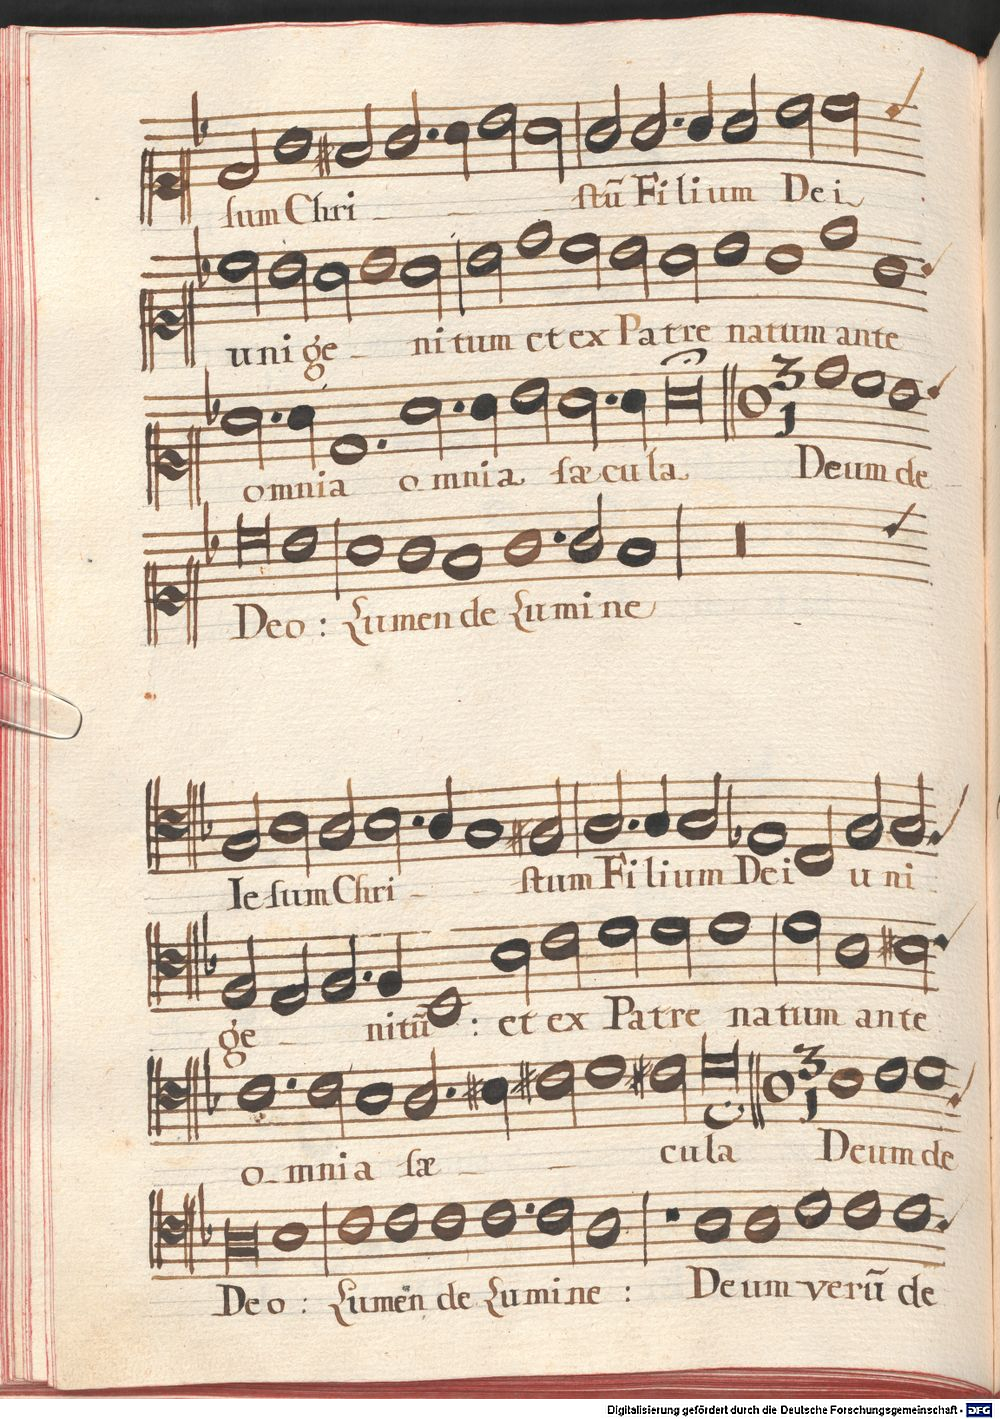 sum Chri - - stū Filium Dei
unige - nitum et ex Patre natum ante
omnia omnia sæcula 3 1 Deum de
Deo : Lumen de Lumine
Ie sum Chri - - stum Filium Dei uni
ge - nitū : et ex Patre natum ante
o - mnia sæ - - cula 3 1 Deum de
Deo : Lumen de Lumine : Deum verū de
Digitalisierung gefördert durch die Deutsche Forschungsgemeinschaft - DFG